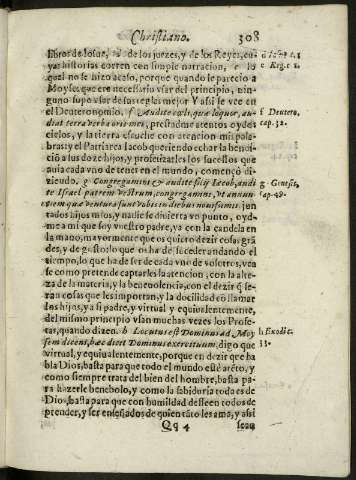 Christiano. 308
libros de Iosue, y de los juezes, y de los Reyes, cu
yas historias corren con simple narracion, e lo
qual no se hizo acaso, porque quando le parecio a
Moyses que ere necessario vsar del principio, nin
guno supo vsar de sus reglas mejor. Y assi se vee en
el Deuteronomio. f Audite cæli, quæ loquor, au-
diat terra verba oris mei, prestadme atentos oydos
cielos, y la tierra escuche con atencion mis pala-
bras: y el Patriarca Iacob queriendo echar la bendi
ció a los doze hijos, y profetizarles los sucessos que
auia cada vno de tener en el mundo, començò di-
ziendo. g Congregamini & audite filij Iacob, audi
te Israel patrem vestrum, congregamini, vt annun
tiem quæ ventura sunt vobis in diebus nouissimis. jun
tados hijos mios, y nadie se diuierta vn punto, oyd-
me a mi que soy vuestro padre, ya con la candela en
la mano, mayormente que os quiero dezir cosas grã
des, y de gusto: lo que os ha de suceder andando el
tiempo, lo que ha de ser de cada vno de vosotros, vea
se como pretende captarles la atencion, con la alte-
za de la materia, y la beneuolencia, con el dezir q̃ se-
ran cosas que les importan, y la docilidad cõ llamar
los hijos, y a si padre, y virtual, y equiualentemente,
del mismo principio vsan muchas vezes los Profe-
tas, quando dizen. h Locutus est Dominus ad Moy
sem dicent, hæc dicit Dominus exercituum, digo que
virtual, y equiualentemente, porque en dezir que ha
bla Dios, basta para que todo el mundo estè atẽto, y
como siempre trata del bien del hombre, basta pa-
ra hazerle beneuolo, y como la sabiduria toda es de
Dios, basta para que con humildad desseen todos de
prender, y ser enseñados de quien tãto les ama, y assi
Qq 4 sean
e Reg. c. 1.
f Deutero.
cap. 32.
g Genesis,
cap. 49.
h Exodi c.
33.